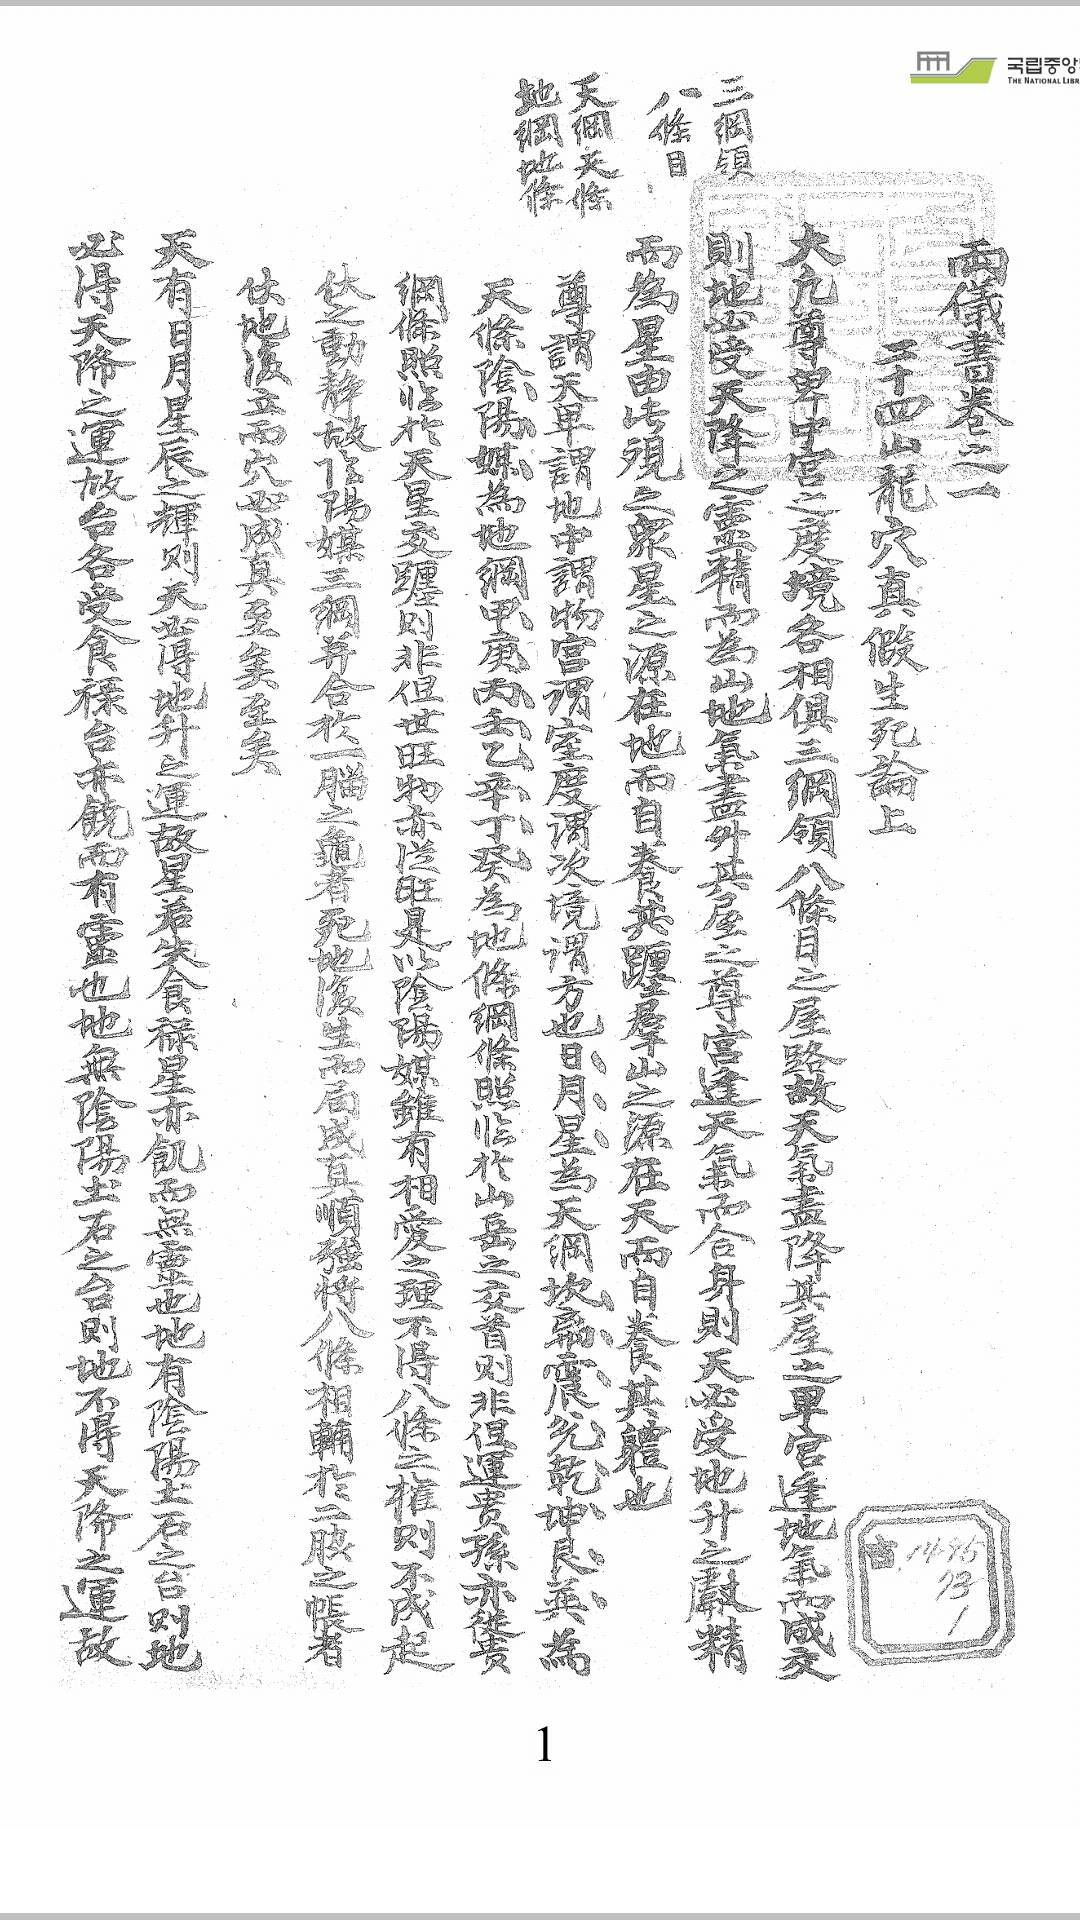 국립중앙
THE NATIONAL LIBR
三綱領
八條目
天綱天條
地綱地條
兩儀書卷之一
二十四山龍穴真假生死論上
大凡尊卑中宮之度境各相俱三綱領八條目之屋路故天氣盡降其屋之卑宮逢地氣而成交
則地必受天降之靈精而為山地氣盡升其屋之尊宮逢天氣而合身則天必受地升之獻精
而為星由此視之衆星之源在地而自養其躔羣山之源在天而自養其體也
尊謂天卑謂地中謂物宮謂室度謂次境謂方也日月星為天綱坎离震兌乾坤艮巽為
天條陰陽媒為地綱甲庚丙壬乙辛丁癸為地條綱條照临於山岳之交首则非但運贵孫亦從贵
綱條照临於天星交躔则非但世旺物亦从旺是以陰陽媒雖有相愛之理不得八條之權则不成起
伏之動靜故陰陽媒三綱并合於一腦之龜者死地復生而局成真順強將八條相輔於二脥之帳者
伏地復立而穴必成真至矣至矣
天有日月星辰之輝则天必得地升之運故星若失食祿星亦飢而無靈也地有陰陽土石之台则地
必得天降之運故台各受食祿台亦饒而有靈也地無陰陽土石之台则地不得天降之運故
古1495
73
1
1